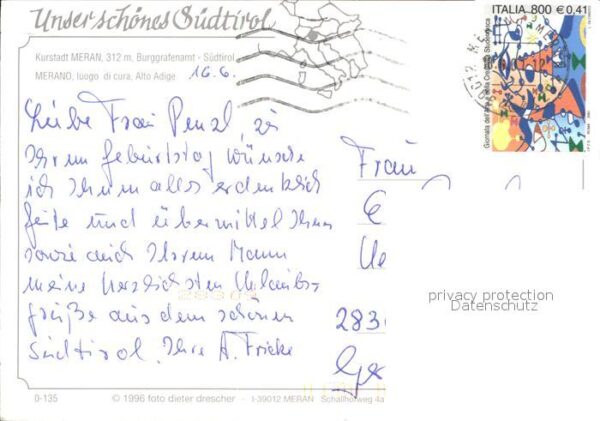 Unser schönes Südtirol
Kurstadt MERAN, 312 m, Burggrafenamt - Südtirol
MERANO, luogo di cura, Alto Adige
16.6.
ITALIA 800 €0,41
Giornata dell'Arte e della Creatività Studentesca
Liebe Frau Penzl, zu
Ihrem Geburtstag wünsche
ich Ihnen alles erdenklich
Gute und übermittel Ihnen
sowie auch Ihrem Mann
meine herzlichsten Urlaubs-
grüße aus dem schönen
Südtirol. Ihre A. Fricke
Frau
privacy protection
Datenschutz
283
0-135
© 1996 foto dieter drescher - I-39012 MERAN Schallhofweg 4a